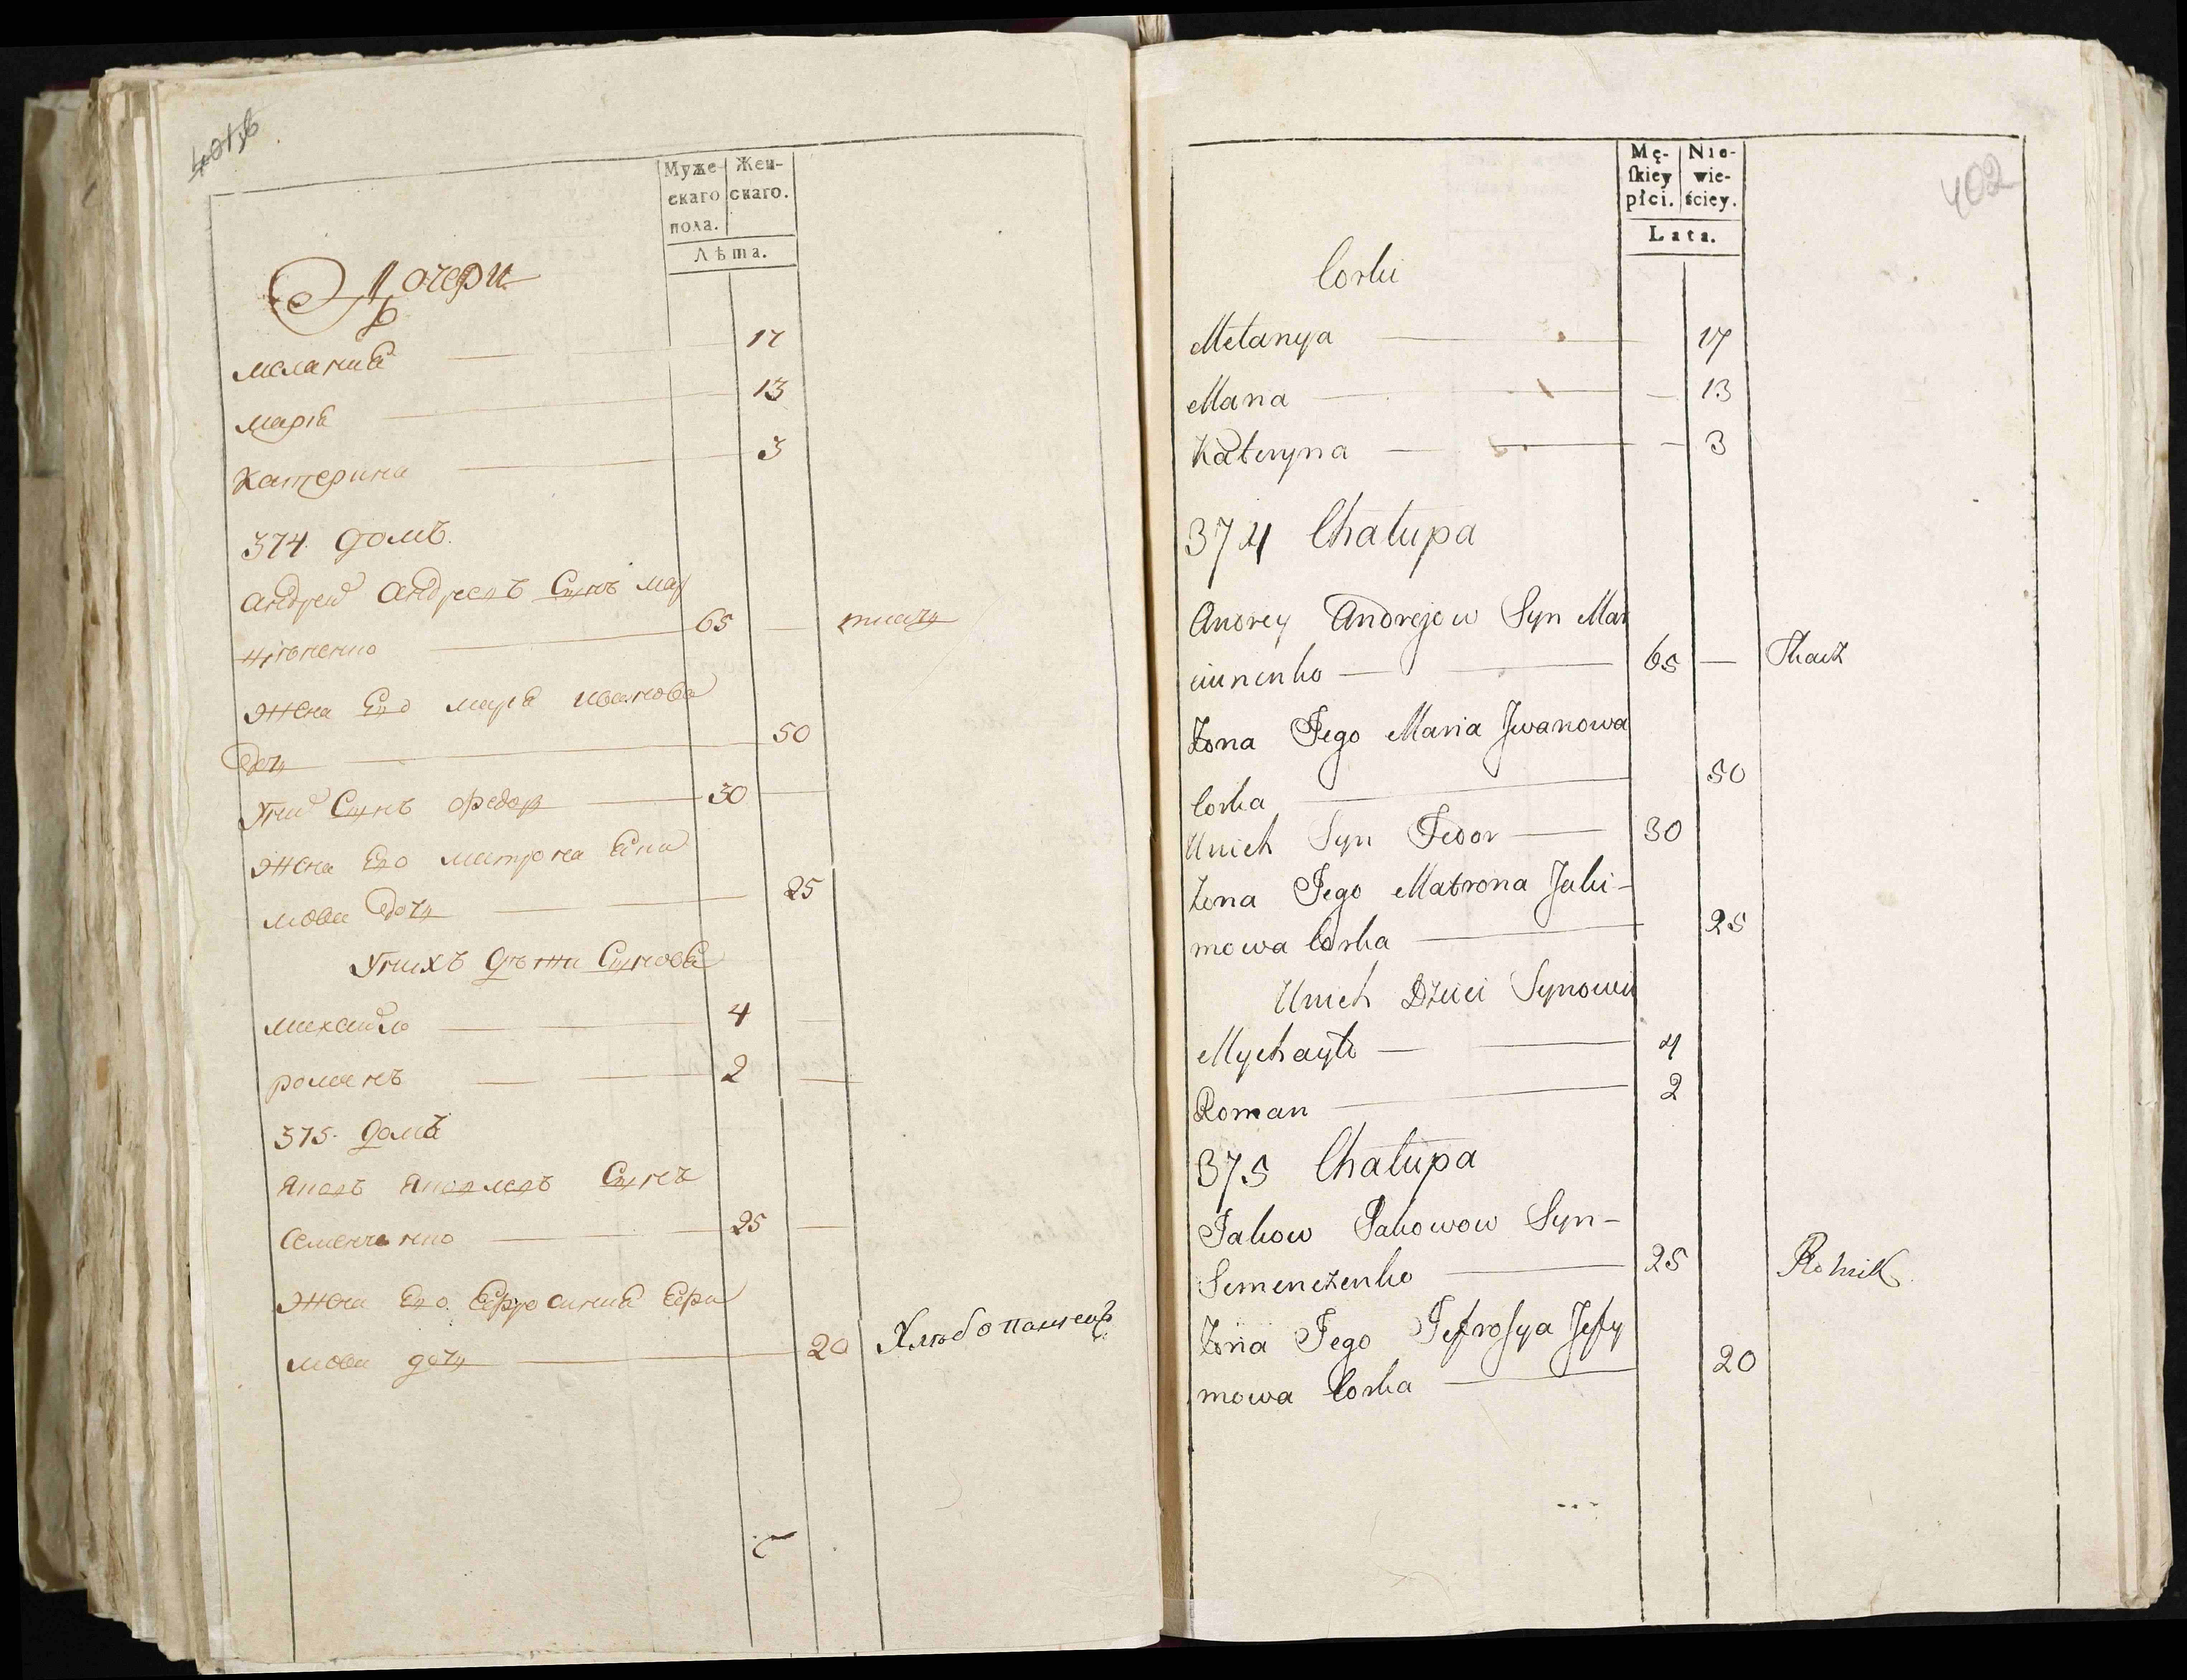 401об
Муже-
скаго
пола.
Жен-
скаго.
Лѣта.
Дочери
мелания 17
мария 13
катерина 3
374 домъ.
андрей андреевъ Сынъ мар
тиненко 65 — ткачъ
жена Его мария иванова
дочь 50
У них Сынъ федоръ 30 —
жена Его матрона Еки
мова дочь 25
У нихъ дѣти Сыновя
михайло 4 —
романъ 2 —
375. домъ
яковъ яковлевъ Сынъ
Семенченко 25 —
жена Его Ефросиния Ефи
мова дочь 20 Хлѣбопашецъ
402
Mę-
ſkiey
płci.
Nie-
wie-
ściey.
Lata.
Corki
Melanya 17
Maria — 13
Kateryna — 3
374 Chałupa
Andrey Andrejow Syn Mar
ciinenko 65 — Tkacz
Żona Jego Maria Jwanowa
Corka 50
Unich Syn Fedor 30
Żona Jego Matrona Jaki-
mowa Corka 25
Unich Dzieci Synowie
Mychayło 4
Roman 2
375 Chałupa
Jakow Jakowow Syn-
Semenczenko 25 Rolnik
Żona Jego Jefrosya Jefy
mowa Corka 20